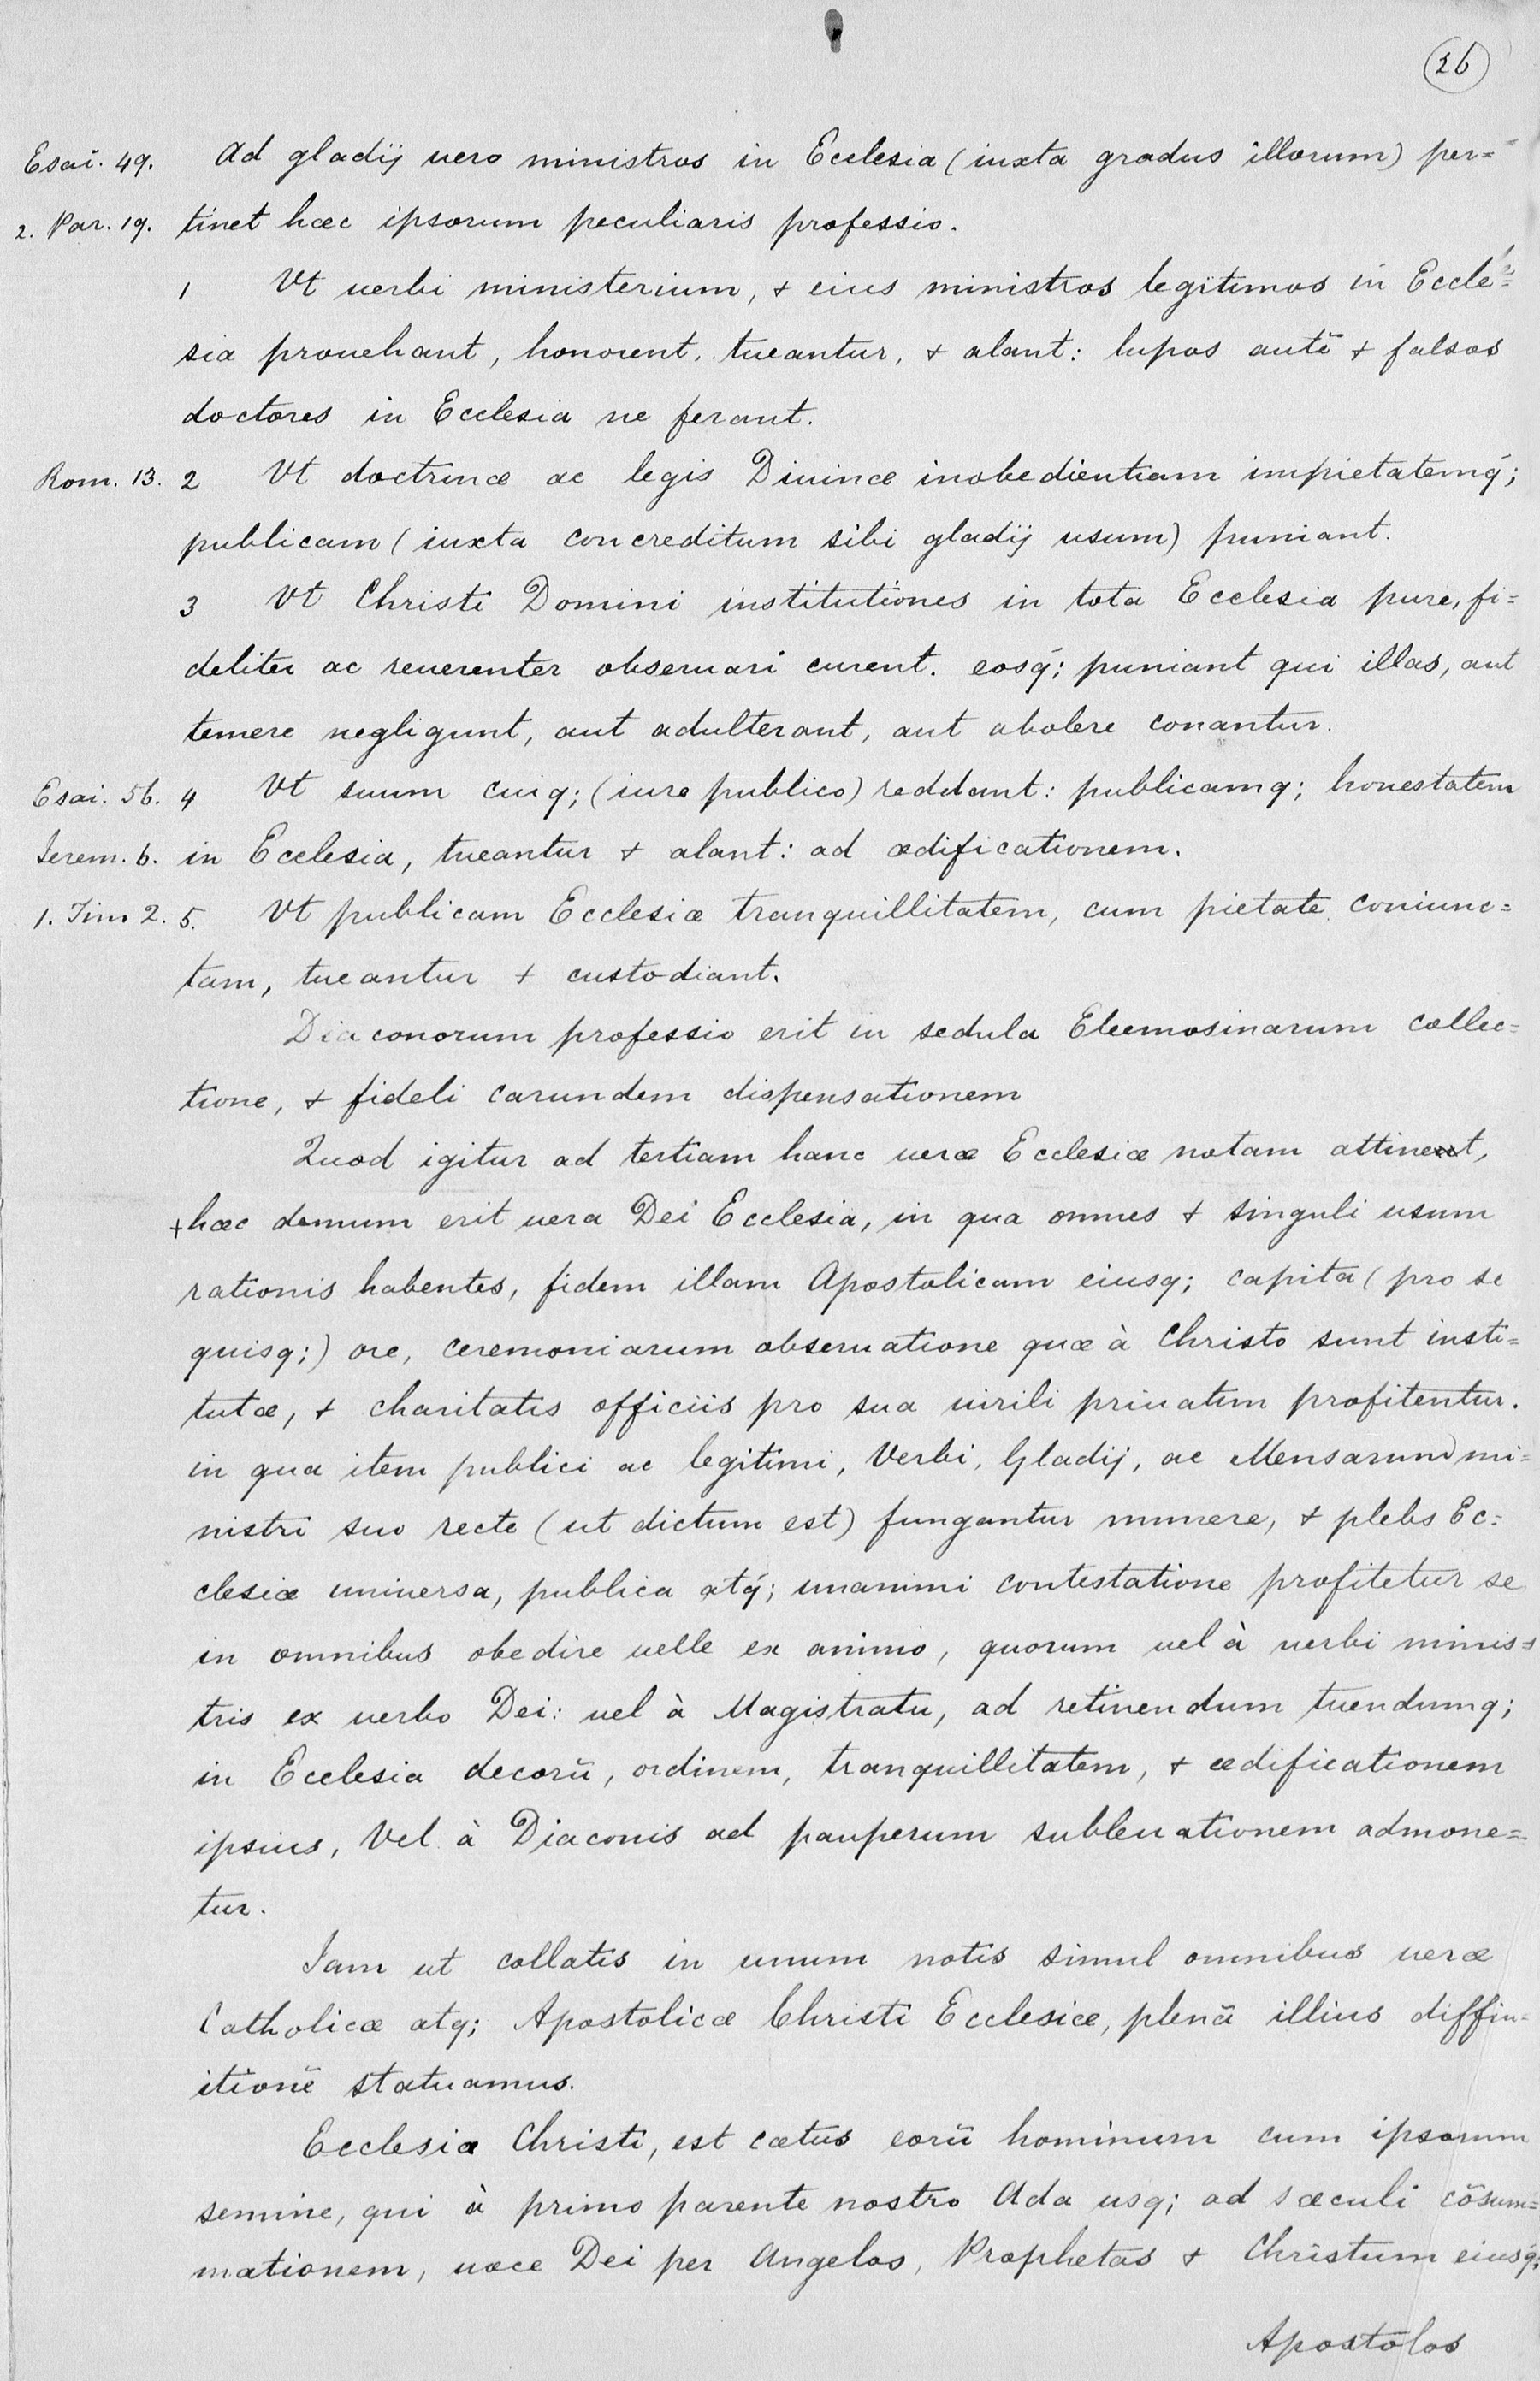 26
Esai. 49. Ad gladij uero ministros in Ecclesia (iuxta gradus illorum) per=
2. Par. 19. tinet hæc ipsorum peculiaris professio.
1 Vt uerbi ministerium, & eius ministros legitimos in Eccle=
sia prouehant, honorent, tueantur, & alant: lupos autē & falsos
doctores in Ecclesia ne ferant.
Rom. 13. 2 Vt doctrinæ ac legis Diuinæ inobedientiam impietatemq́;
publicam (iuxta concreditum sibi gladij usum) puniant.
3 Vt Christi Domini institutiones in tota Ecclesia pure, fi=
deliter ac reuerenter obseruari curent. eosq́; puniant qui illas, aut
temere negligunt, aut adulterant, aut abolere conantur.
Esai. 56. 4 Vt suum cuiq; (iure publico) reddant: publicamq; honestatem
Ierem. 6. in Ecclesia, tueantur & alant: ad ædificationem.
1. Tim 2. 5. Vt publicam Ecclesiæ tranquillitatem, cum pietate coniunc=
tam, tueantur & custodiant.
Diaconorum professio erit in sedula Eleemosinarum collec=
tione, & fideli earundem dispensationem
Quod igitur ad tertiam hanc ueræ Ecclesiæ notam attinet,
+hæc demum erit uera Dei Ecclesia, in qua omnes & singuli usum
rationis habentes, fidem illam Apostolicam eiusq; capita (pro se
quisq;) ore, ceremoniarum obseruatione quæ à Christo sunt insti=
tutæ, & charitatis officiis pro sua uirili priuatim profitentur.
in qua item publici ac legitimi, Verbi, Gladij, ac Mensarum mi=
nistri suo recte (ut dictum est) fungantur munere, & plebs Ec=
clesiæ uniuersa, publica atq́; unanimi contestatione profitetur se
in omnibus obedire uelle ex animo, quorum uel à uerbi minis=
tris ex uerbo Dei: uel à Magistratu, ad retinendum tuendumq;
in Ecclesia decorū, ordinem, tranquillitatem, & ædificationem
ipsius, Vel à Diaconis ad pauperum subleuationem admone=
tur.
Iam ut collatis in unum notis simul omnibus ueræ
Catholicæ atq; Apostolicæ Christi Ecclesiæ, plenā illius diffin=
itionē statuamus.
Ecclesia Christi, est cœtus eorū hominum cum ipsorum
semine, qui à primo parente nostro Ada usq; ad sæculi cōsum=
mationem, uoce Dei per Angelos, Prophetas & Christum eiusq́;
Apostolos